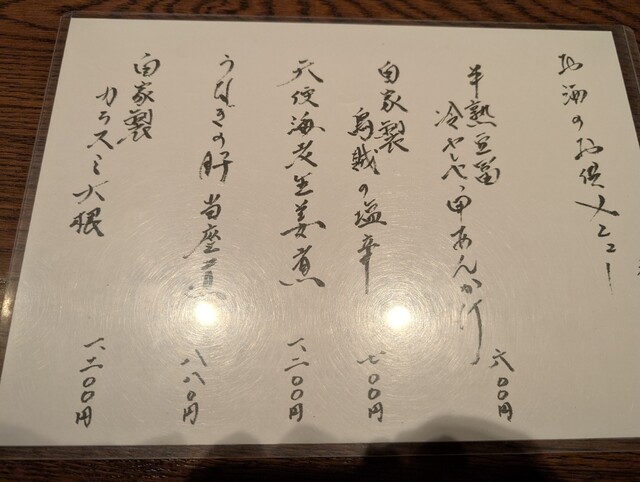 お酒のお供メニュー
半熟豆富
冷やしべっ甲あんかけ
六〇〇円
自家製
烏賊の塩辛
七〇〇円
天使海老生姜煮
一、二〇〇円
うなぎの肝 当座煮
八八〇円
自家製
カラスミ大根
一、二〇〇円